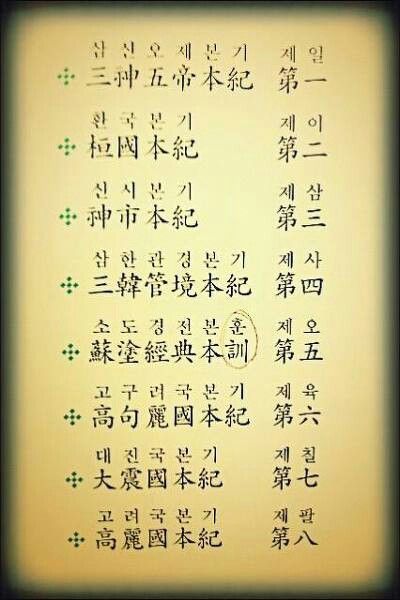 삼신오제본기 제일
三神五帝本紀 第一
환국본기 제이
桓國本紀 第二
신시본기 제삼
神市本紀 第三
삼한관경본기 제사
三韓管境本紀 第四
소도경전본훈 제오
蘇塗經典本訓 第五
고구려국본기 제육
高句麗國本紀 第六
대진국본기 제칠
大震國本紀 第七
고려국본기 제팔
高麗國本紀 第八